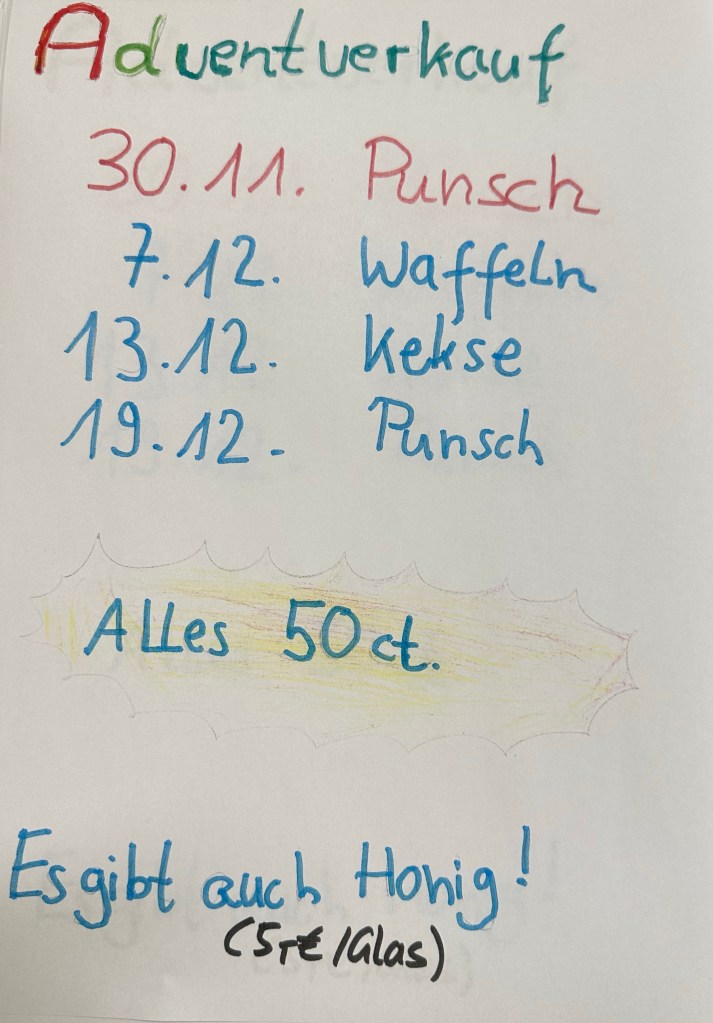 Adventverkauf
30.11. Punsch
7.12. Waffeln
13.12. Kekse
19.12. Punsch
Alles 50 ct.
Es gibt auch Honig!
(5,-€/Glas)